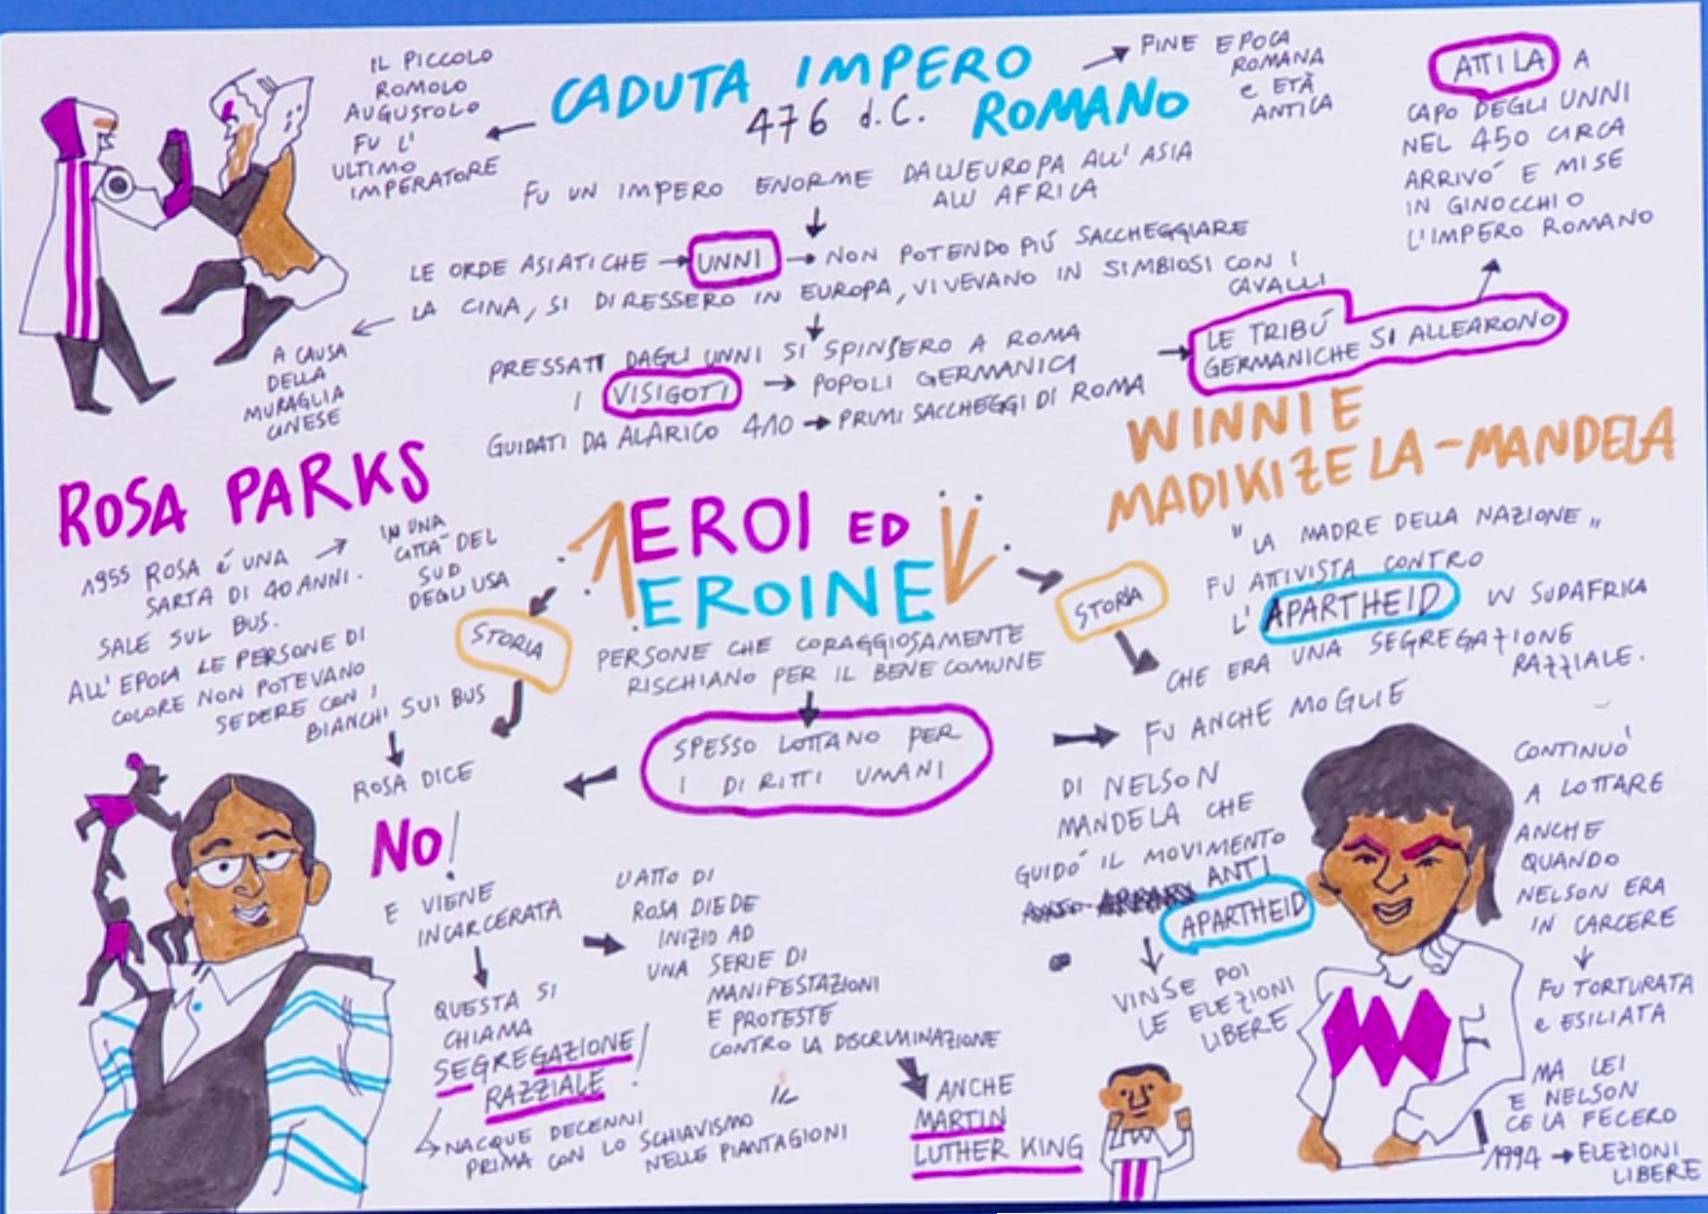 CADUTA IMPERO
ROMANO
476 d.C.
FINE EPOCA
ROMANA
e ETÀ
ANTICA
IL PICCOLO
ROMOLO
AUGUSTOLO
FU L'
ULTIMO
IMPERATORE
FU UN IMPERO ENORME DALL'EUROPA ALL' ASIA
ALL' AFRICA
LE ORDE ASIATICHE → UNNI → NON POTENDO PIÚ SACCHEGGIARE
LA CINA, SI DIRESSERO IN EUROPA, VIVEVANO IN SIMBIOSI CON I
CAVALLI
A CAUSA
DELLA
MURAGLIA
CINESE
PRESSATI DAGLI UNNI SI SPINSERO A ROMA
I VISIGOTI → POPOLI GERMANICI
GUIDATI DA ALARICO 410 → PRIMI SACCHEGGI DI ROMA
LE TRIBÚ
GERMANICHE SI ALLEARONO
ATTILA A
CAPO DEGLI UNNI
NEL 450 CIRCA
ARRIVÓ E MISE
IN GINOCCHIO
L'IMPERO ROMANO
ROSA PARKS
1955 ROSA é UNA
SARTA DI 40 ANNI.
IN UNA
CITTÁ DEL
SUD
DEGLI USA
SALE SUL BUS.
ALL'EPOCA LE PERSONE DI
COLORE NON POTEVANO
SEDERE CON I
BIANCHI SUI BUS
ROSA DICE
NO!
E VIENE
INCARCERATA
QUESTA SI
CHIAMA
SEGREGAZIONE
RAZZIALE!
NACQUE DECENNI
PRIMA CON LO SCHIAVISMO
NELLE PIANTAGIONI
L'ATTO DI
ROSA DIEDE
INIZIO AD
UNA SERIE DI
MANIFESTAZIONI
E PROTESTE
CONTRO LA DISCRIMINAZIONE
ANCHE
MARTIN
LUTHER KING
EROI ED
EROINE
STORIA
STORIA
PERSONE CHE CORAGGIOSAMENTE
RISCHIANO PER IL BENE COMUNE
SPESSO LOTTANO PER
I DIRITTI UMANI
WINNIE
MADIKIZELA-MANDELA
"LA MADRE DELLA NAZIONE"
FU ATTIVISTA CONTRO
L' APARTHEID IN SUDAFRICA
CHE ERA UNA SEGREGAZIONE
RAZZIALE.
FU ANCHE MOGLIE
DI NELSON
MANDELA CHE
GUIDÓ IL MOVIMENTO
ANTI
APARTHEID
VINSE POI
LE ELEZIONI
LIBERE
CONTINUÓ
A LOTTARE
ANCHE
QUANDO
NELSON ERA
IN CARCERE
FU TORTURATA
e ESILIATA
MA LEI
E NELSON
CE LA FECERO
1994 → ELEZIONI
LIBERE